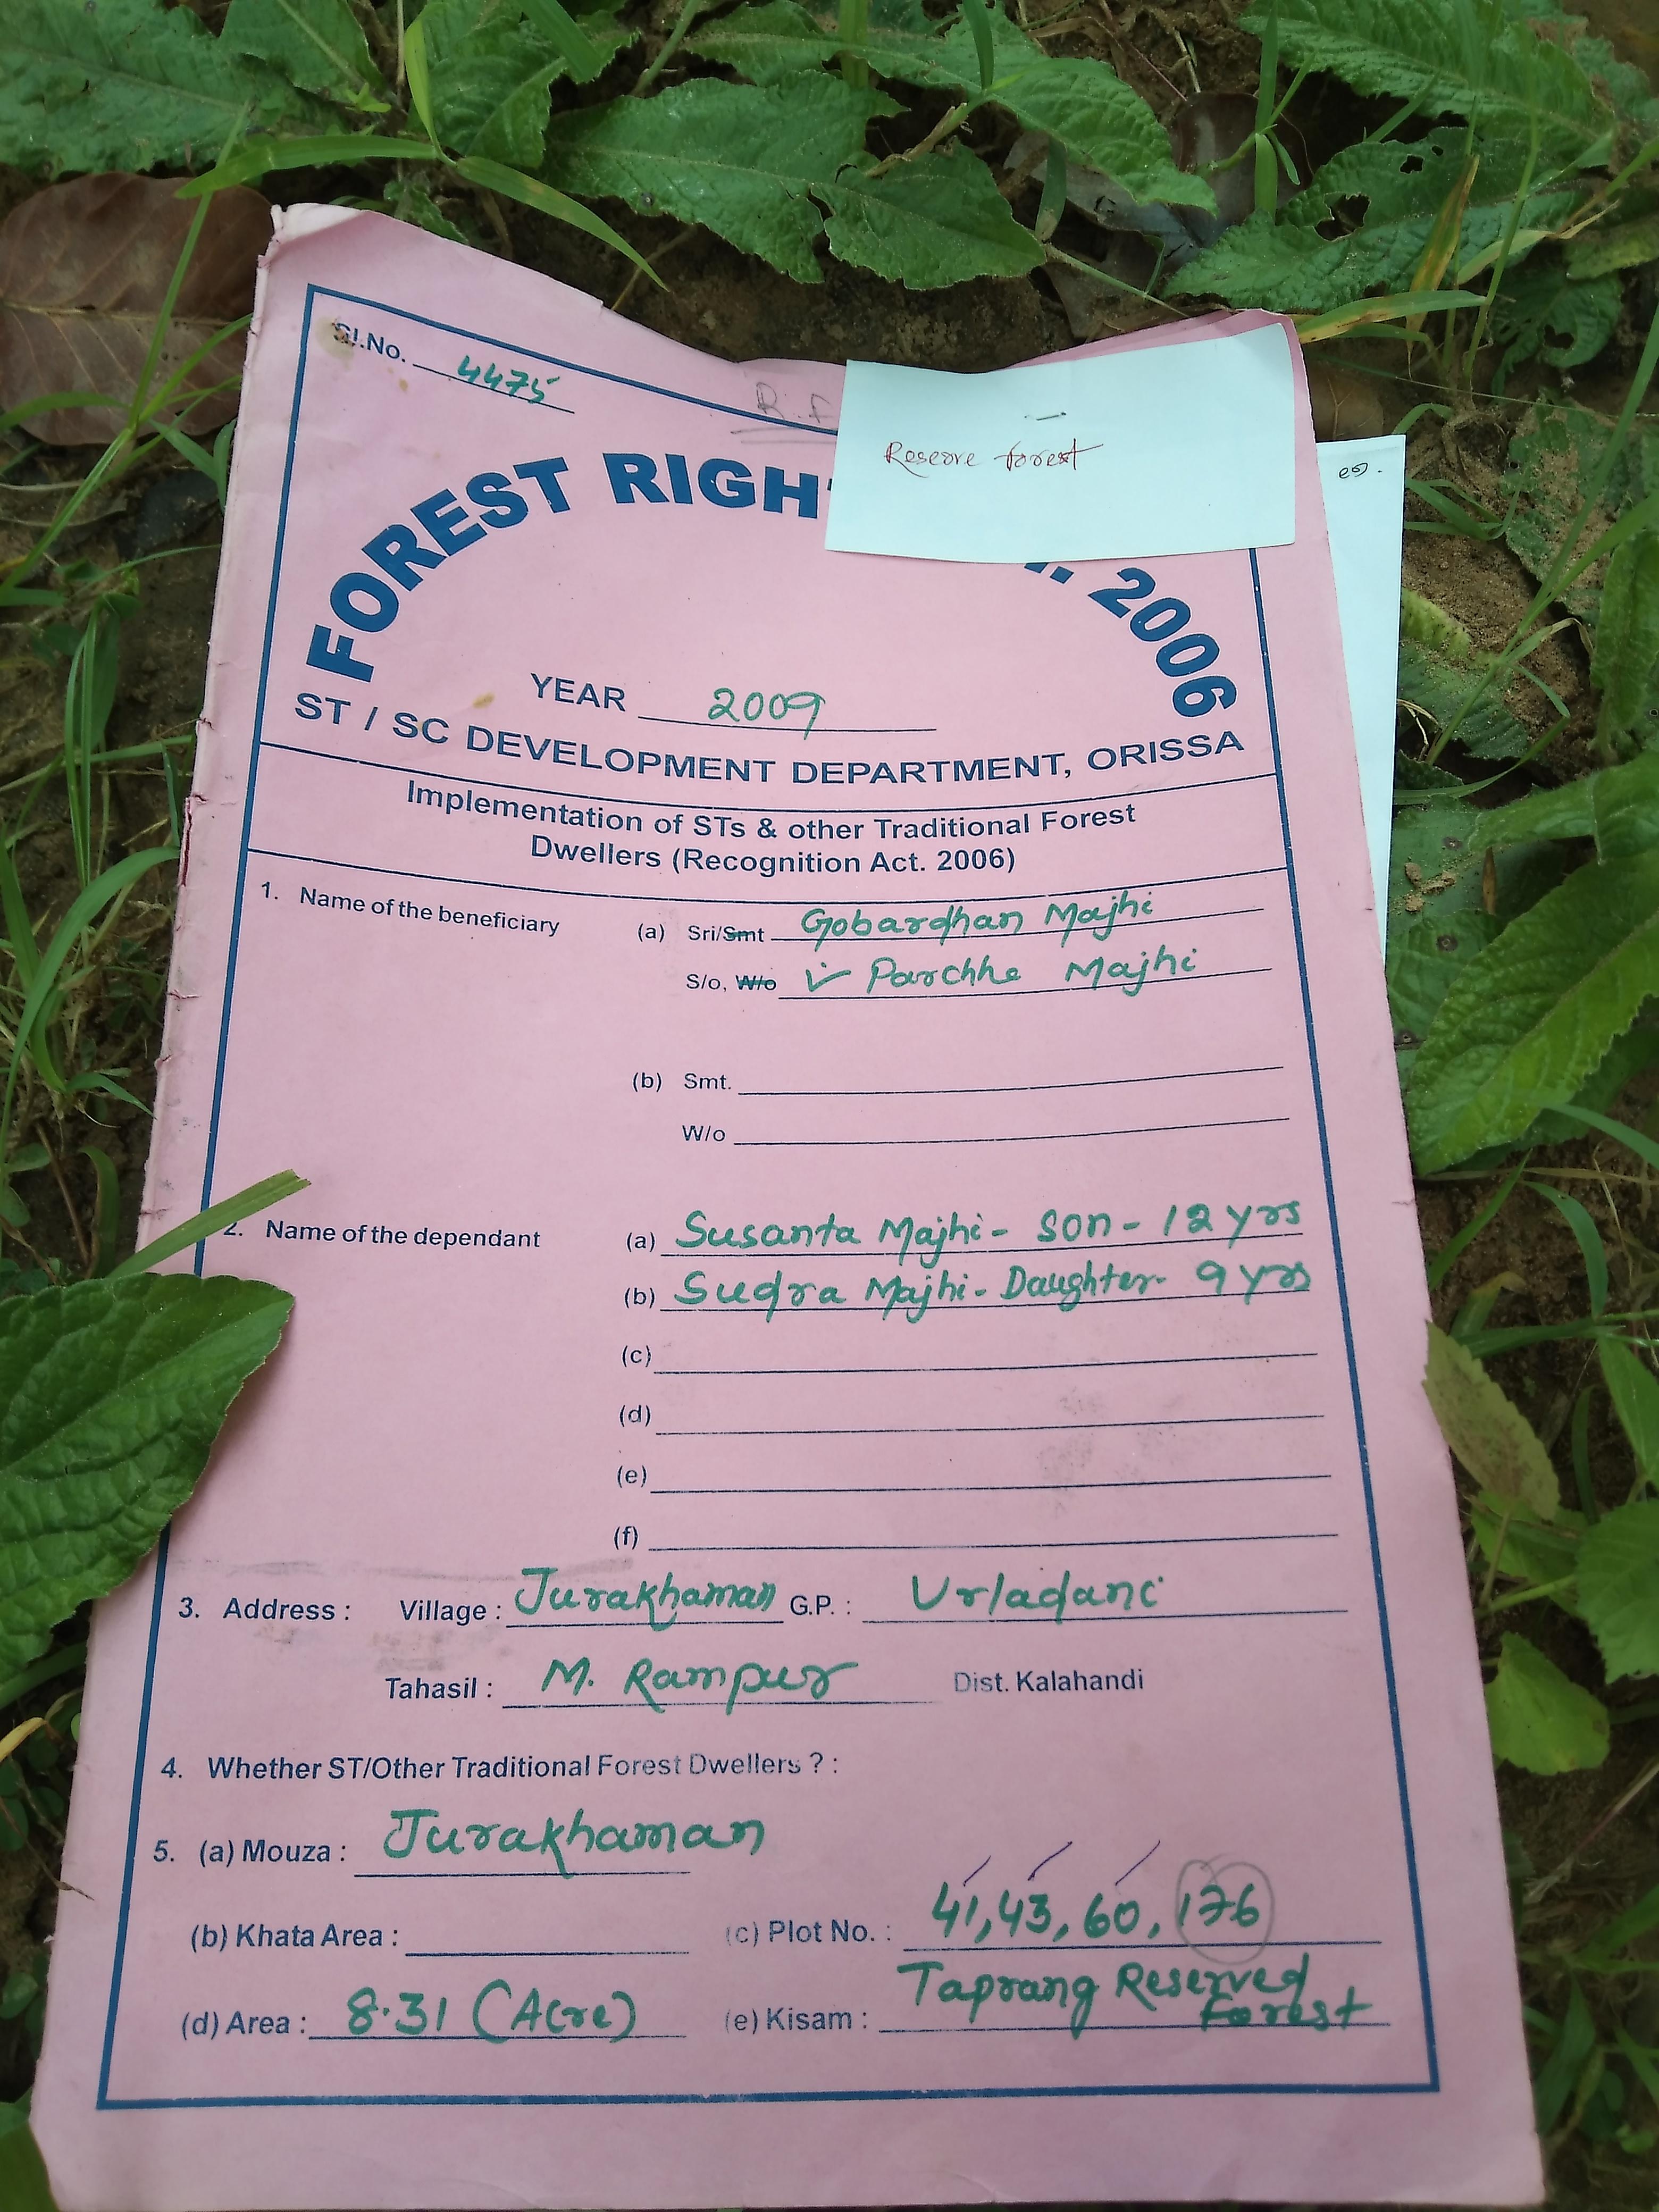 Sl.No. 4475
R.F
Reserve forest
FOREST RIGH
. 2006
YEAR 2009
ST / SC DEVELOPMENT DEPARTMENT, ORISSA
Implementation of STs & other Traditional Forest
Dwellers (Recognition Act. 2006)
1. Name of the beneficiary (a) Sri/Smt Gobardhan Majhi
S/o, W/o Parchhe Majhi
(b) Smt.
W/o
2. Name of the dependant (a) Susanta Majhi - Son - 12 yrs
(b) Sudra Majhi - Daughter - 9 yrs
(c)
(d)
(e)
(f)
3. Address : Village : Jurakhaman G.P. : Urladani
Tahasil : M. Rampur Dist. Kalahandi
4. Whether ST/Other Traditional Forest Dwellers ? :
5. (a) Mouza : Jurakhaman
(b) Khata Area : (c) Plot No. : 41, 43, 60, 176
(d) Area : 8.31 (Acre) (e) Kisam : Taprang Reserved
Forest